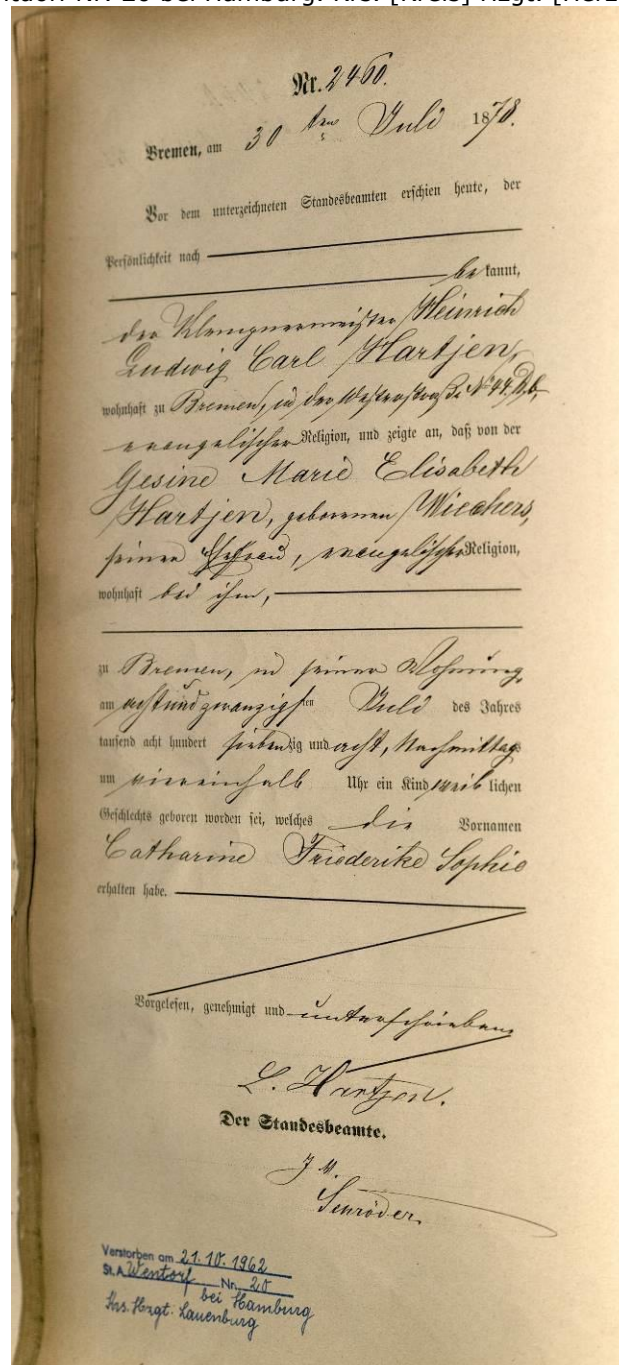 Nr. 2460.
Bremen, am 30 ten Juli 1878.
Vor dem unterzeichneten Standesbeamten erschien heute, der
Persönlichkeit nach
be kannt,
der Klempnermeister Heinrich
Ludwig Carl Hartjen,
wohnhaft zu Bremen, in der Westerstraße No 44.
evangelischer Religion, und zeigte an, daß von der
Gesine Marie Elisabeth
Hartjen, geborenen Wiechers,
seiner Ehefrau, evangelischer Religion,
wohnhaft bei ihm,
zu Bremen, in seiner Wohnung,
am achtundzwanzigsten Juli des Jahres
tausend acht hundert siebenzig und acht, Nachmittags
um viereinhalb Uhr ein Kind weiblichen
Geschlechts geboren worden sei, welches die Vornamen
Catharine Friederike Sophie
erhalten habe.
Vorgelesen, genehmigt und unterschrieben
L. Hartjen.
Der Standesbeamte.
J. V.
Schröder.
Verstorben am 21.10.1962
St.A. Wentorf Nr. 20
bei Hamburg
Krs. Hzgt. Lauenburg